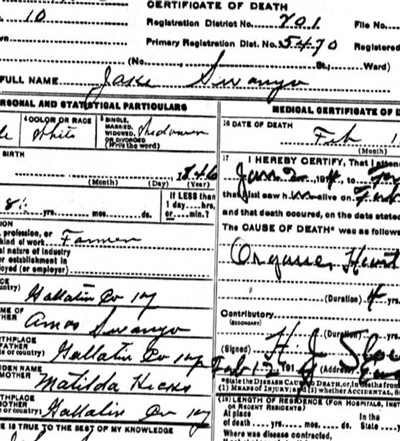 CERTIFICATE OF DEATH
10
Registration District No. 701 File No.
Primary Registration Dist. No. 5470 Registered
(No. St.; Ward)
FULL NAME Jake Swango
PERSONAL AND STATISTICAL PARTICULARS
MEDICAL CERTIFICATE OF D
4 COLOR OR RACE White
5 SINGLE, MARRIED, WIDOWED, OR DIVORCED (Write the word) Widower
16 DATE OF DEATH
Feb 1
BIRTH
1846
(Month) (Day) (Year)
17 I HEREBY CERTIFY, That I atten
that I last saw h alive on Feb
and that death occured, on the date stated
81 yrs. mos. ds.
If LESS than 1 day....hrs. or....min.?
The CAUSE OF DEATH* was as follow
Heart
profession, or kind of work Farmer
ral nature of industry
or establishment in
ployed (or employer)
(Duration) 4 yrs.
Gallatin Co Ky
Contributory
(SECONDARY)
(Duration) yrs.
NAME OF
Amos Swango
(Signed) H. J.
BIRTHPLACE
FATHER
or country) Gallatin Co Ky
Feb 1 191
*State the DISEASE CAUSING DEATH, or, in deaths from
(1) MEANS OF INJURY; and (2) whether ACCIDENTAL, S
MAIDEN NAME
MOTHER Matilda Hicks
(18) LENGTH OF RESIDENCE (FOR HOSPITALS, INSTI
OR RECENT RESIDENTS)
At place
of death yrs. mos. ds. State
Where was disease contracted,
THPLACE
OTHER
or country) Gallatin Co Ky
E IS TRUE TO THE BEST OF MY KNOWLEDGE